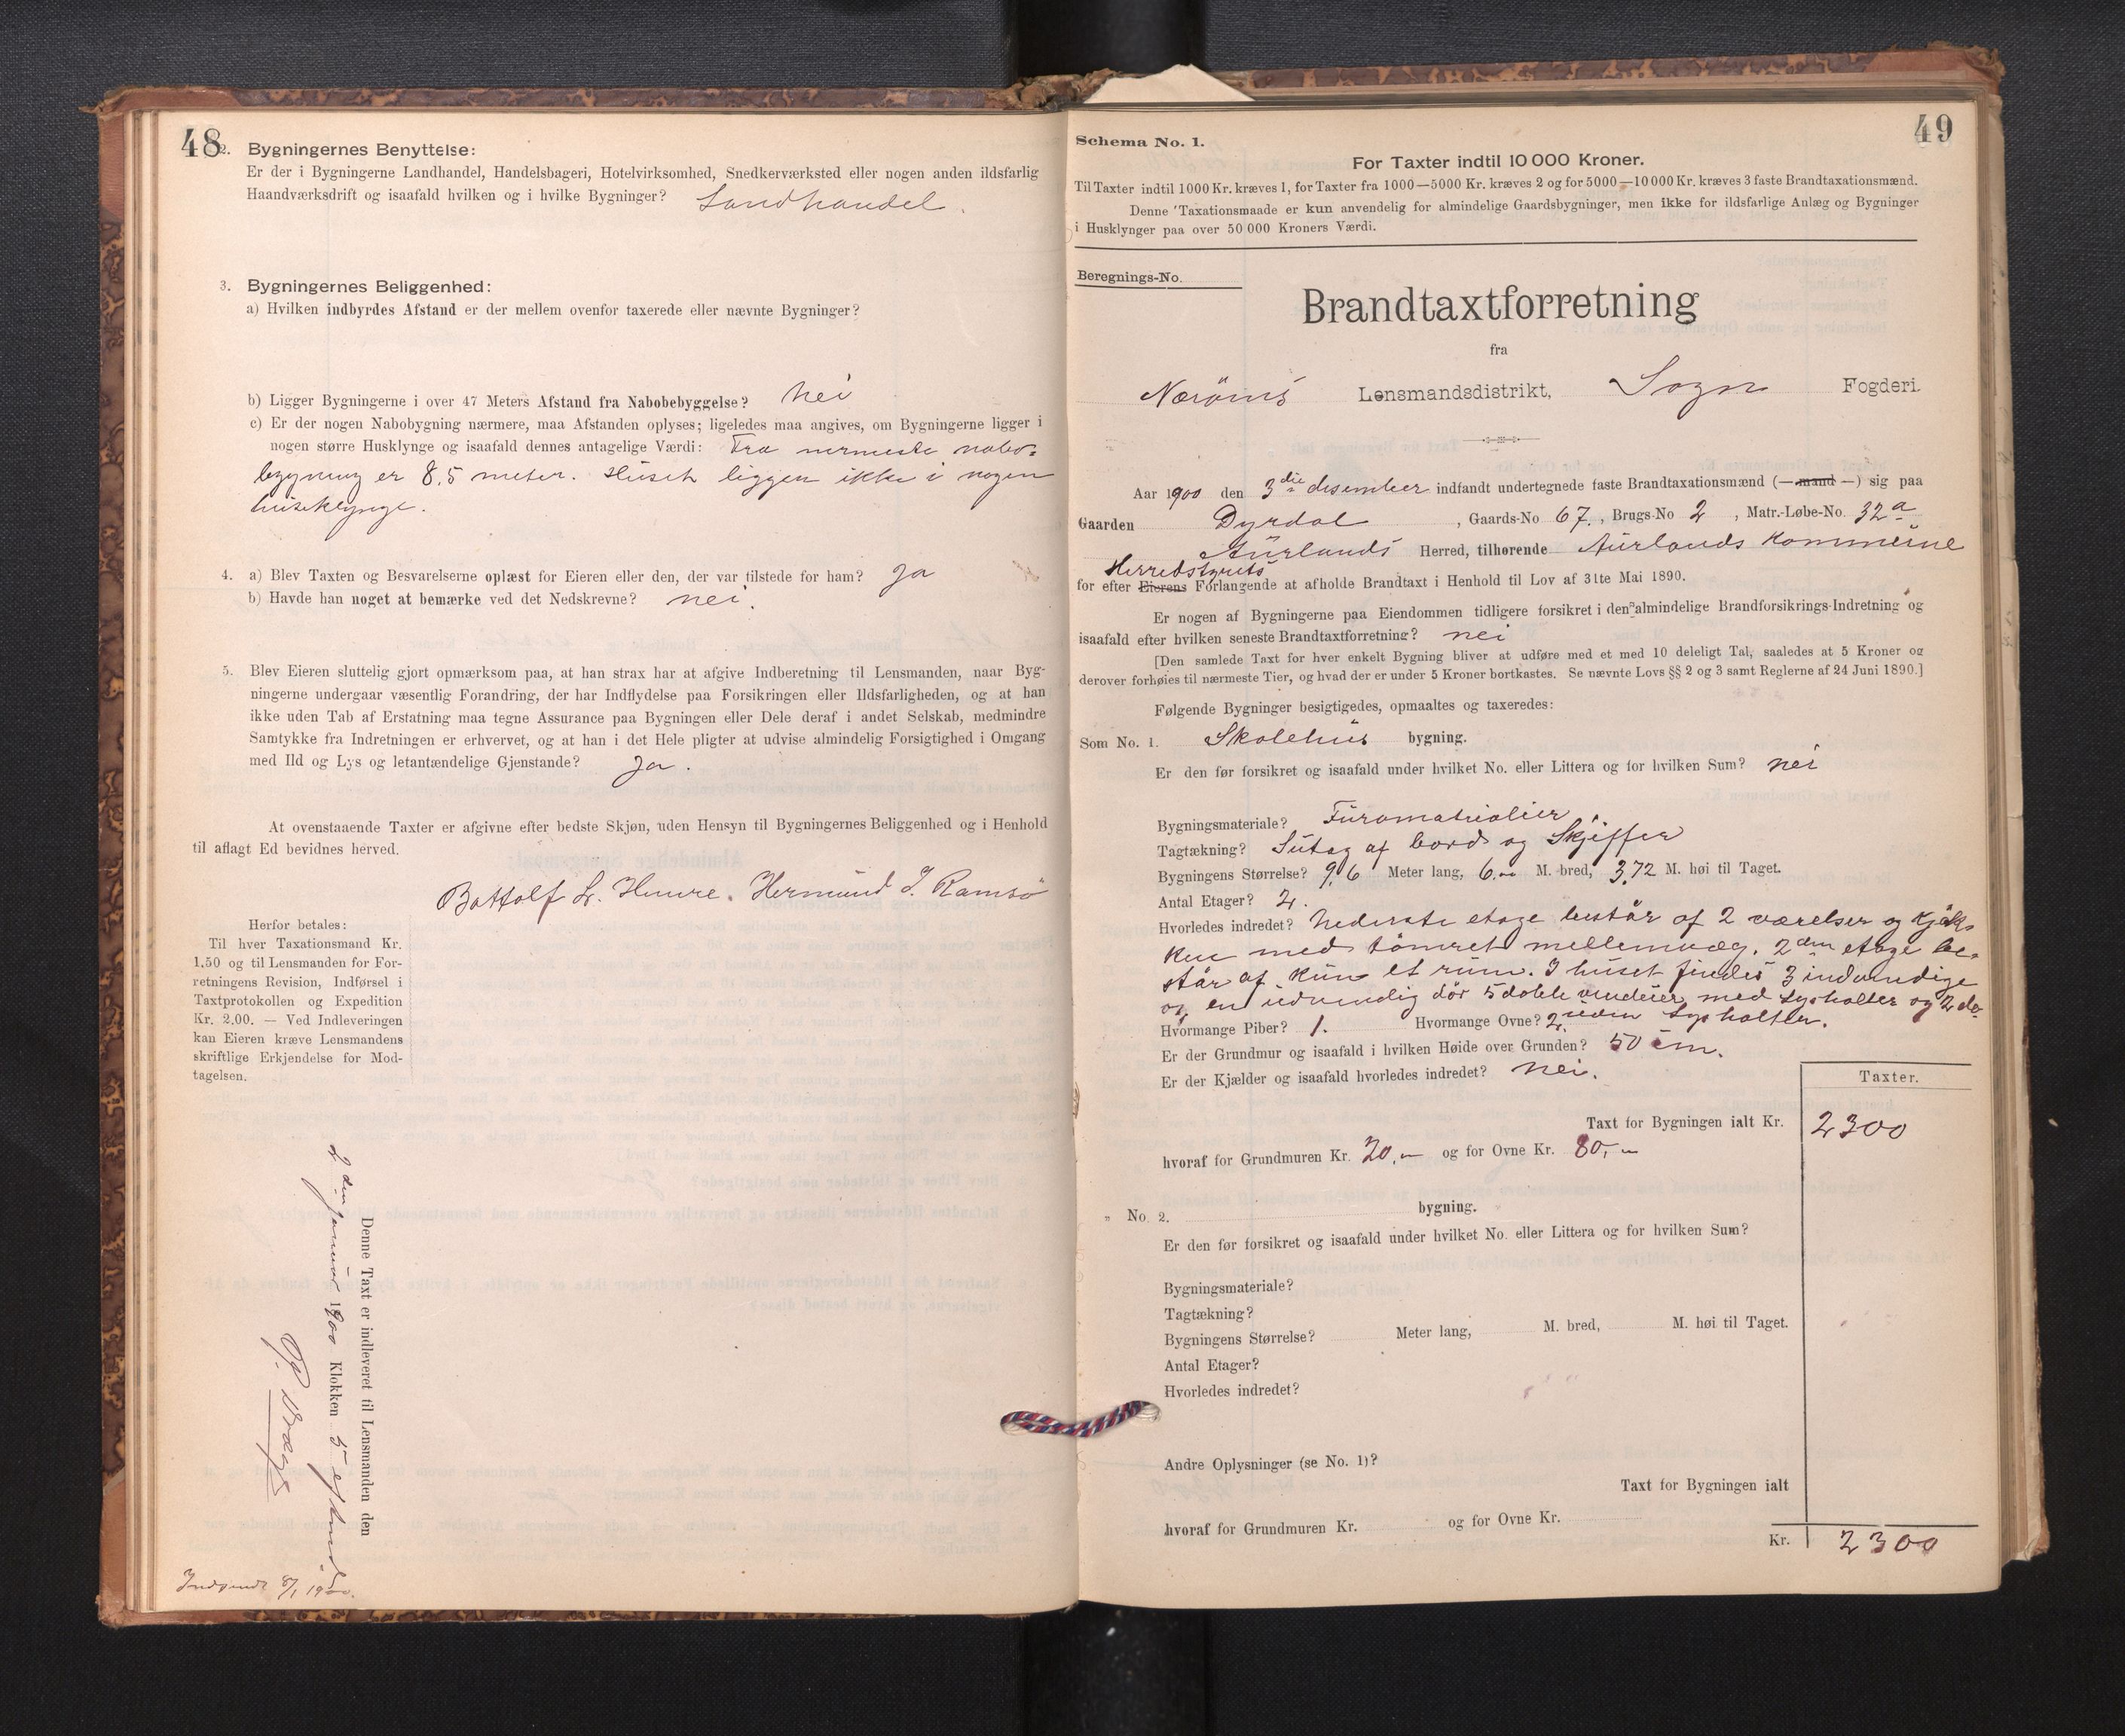 48
2. Bygningernes Benyttelse:
Er der i Bygningerne Landhandel, Handelsbageri, Hotelvirksomhed, Snedkerværksted eller nogen anden ildsfarlig
Haandværksdrift og isaafald hvilken og i hvilke Bygninger? Landhandel.
3. Bygningernes Beliggenhed:
a) Hvilken indbyrdes Afstand er der mellem ovenfor taxerede eller nævnte Bygninger?
b) Ligger Bygningerne i over 47 Meters Afstand fra Nabobebyggelse? Nei
c) Er der nogen Nabobygning nærmere, maa Afstanden oplyses; ligeledes maa angives, om Bygningerne ligger i
nogen større Husklynge og isaafald dennes antagelige Værdi: Fra nermeste nabo-
bygning er 8,5 meter. Huset ligger ikke i nogen
huseklynge.
4. a) Blev Taxten og Besvarelserne oplæst for Eieren eller den, der var tilstede for ham? Ja
b) Havde han noget at bemærke ved det Nedskrevne? nei.
5. Blev Eieren sluttelig gjort opmærksom paa, at han strax har at afgive Indberetning til Lensmanden, naar Byg-
ningerne undergaar væsentlig Forandring, der har Indflydelse paa Forsikringen eller Ildsfarligheden, og at han
ikke uden Tab af Erstatning maa tegne Assurance paa Bygningen eller Dele deraf i andet Selskab, medmindre
Samtykke fra Indretningen er erhvervet, og at han i det Hele pligter at udvise almindelig Forsigtighed i Omgang
med Ild og Lys og letantændelige Gjenstande? Ja.
At ovenstaaende Taxter er afgivne efter bedste Skjøn, uden Hensyn til Bygningernes Beliggenhed og i Henhold
til aflagt Ed bevidnes herved.
Bottolf L. Hemre. Hermund I. Ramsö
Herfor betales:
Til hver Taxationsmand Kr.
1,50 og til Lensmanden for For-
retningens Revision, Indførsel i
Taxtprotokollen og Expedition
Kr. 2,00. — Ved Indleveringen
kan Eieren kræve Lensmandens
skriftlige Erkjendelse for Mod-
tagelsen.
Denne Taxt er indleveret til Lensmanden den
2den januar 1900 Klokken 5 eftmd.
Indsendt 8/1 1900.
49
Schema No. 1.
For Taxter indtil 10 000 Kroner.
Til Taxter indtil 1000 Kr. kræves 1, for Taxter fra 1000—5000 Kr. kræves 2 og for 5000—10 000 Kr. kræves 3 faste Brandtaxationsmænd.
Denne Taxationsmaade er kun anvendelig for almindelige Gaardsbygninger, men ikke for ildsfarlige Anlæg og Bygninger
i Husklynger paa over 50 000 Kroners Værdi.
Beregnings-No.
Brandtaxtforretning
fra
Nærøens Lensmandsdistrikt, Sogn Fogderi.
Aar 1900 den 3die desember indfandt undertegnede faste Brandtaxationsmænd (— mand —) sig paa
Gaarden Dyrdal, Gaards-No 67., Brugs-No 2, Matr.-Løbe-No. 32a
Aurlands Herred, tilhørende Aurlands Kommune
Herredstyrets
for efter Eierens Forlangende at afholde Brandtaxt i Henhold til Lov af 31te Mai 1890.
Er nogen af Bygningerne paa Eiendommen tidligere forsikret i den almindelige Brandforsikrings-Indretning og
isaafald efter hvilken seneste Brandtaxtforretning? nei
[Den samlede Taxt for hver enkelt Bygning bliver at udføre med et med 10 deleligt Tal, saaledes at 5 Kroner og
derover forhøies til nærmeste Tier, og hvad der er under 5 Kroner bortkastes. Se nævnte Lovs §§ 2 og 3 samt Reglerne af 24 Juni 1890.]
Følgende Bygninger besigtigedes, opmaaltes og taxeredes:
Som No. 1. Skolehus bygning.
Er den før forsikret og isaafald under hvilket No. eller Littera og for hvilken Sum? nei
Bygningsmateriale? Furumatrialier
Tagtækning? Sutag af bord og Skjiffer
Bygningens Størrelse? 9,6 Meter lang, 6,00 M. bred, 3,72 M. høi til Taget.
Antal Etager? 2.
Hvorledes indret? Nederste etage består af 2 værelser og kjøk-
ken med tømret mellemvæg. 2den etage be-
står af kun et rum. I huset findes 3 indvendige
og en udvendig dör 5 doble vinduer med Lysholter og 2 do
uden Lysholter.
Hvormange Piber? 1. Hvormange Ovne? 2
Er der Grundmur og isaafald i hvilken Høide over Grunden? 50 cm.
Er der Kjælder og isaafald hvorledes indredet? Nei.
Taxter.
Taxt for Bygningen ialt Kr. 2300
hvoraf for Grundmuren Kr. 20,- og for Ovne Kr. 80,-
" No. 2. bygning.
Er den før forsikret og isaafald under hvilket No. eller Littera og for hvilken Sum?
Bygningsmateriale?
Tagtækning?
Bygningens Størrelse? Meter lang, M. bred, M. høi til Taget.
Antal Etager?
Hvorledes indredet?
Andre Oplysninger (se No. 1)?
Taxt for Bygningen ialt
hvoraf for Grundmuren Kr. og for Ovne Kr.
Kr. 2300